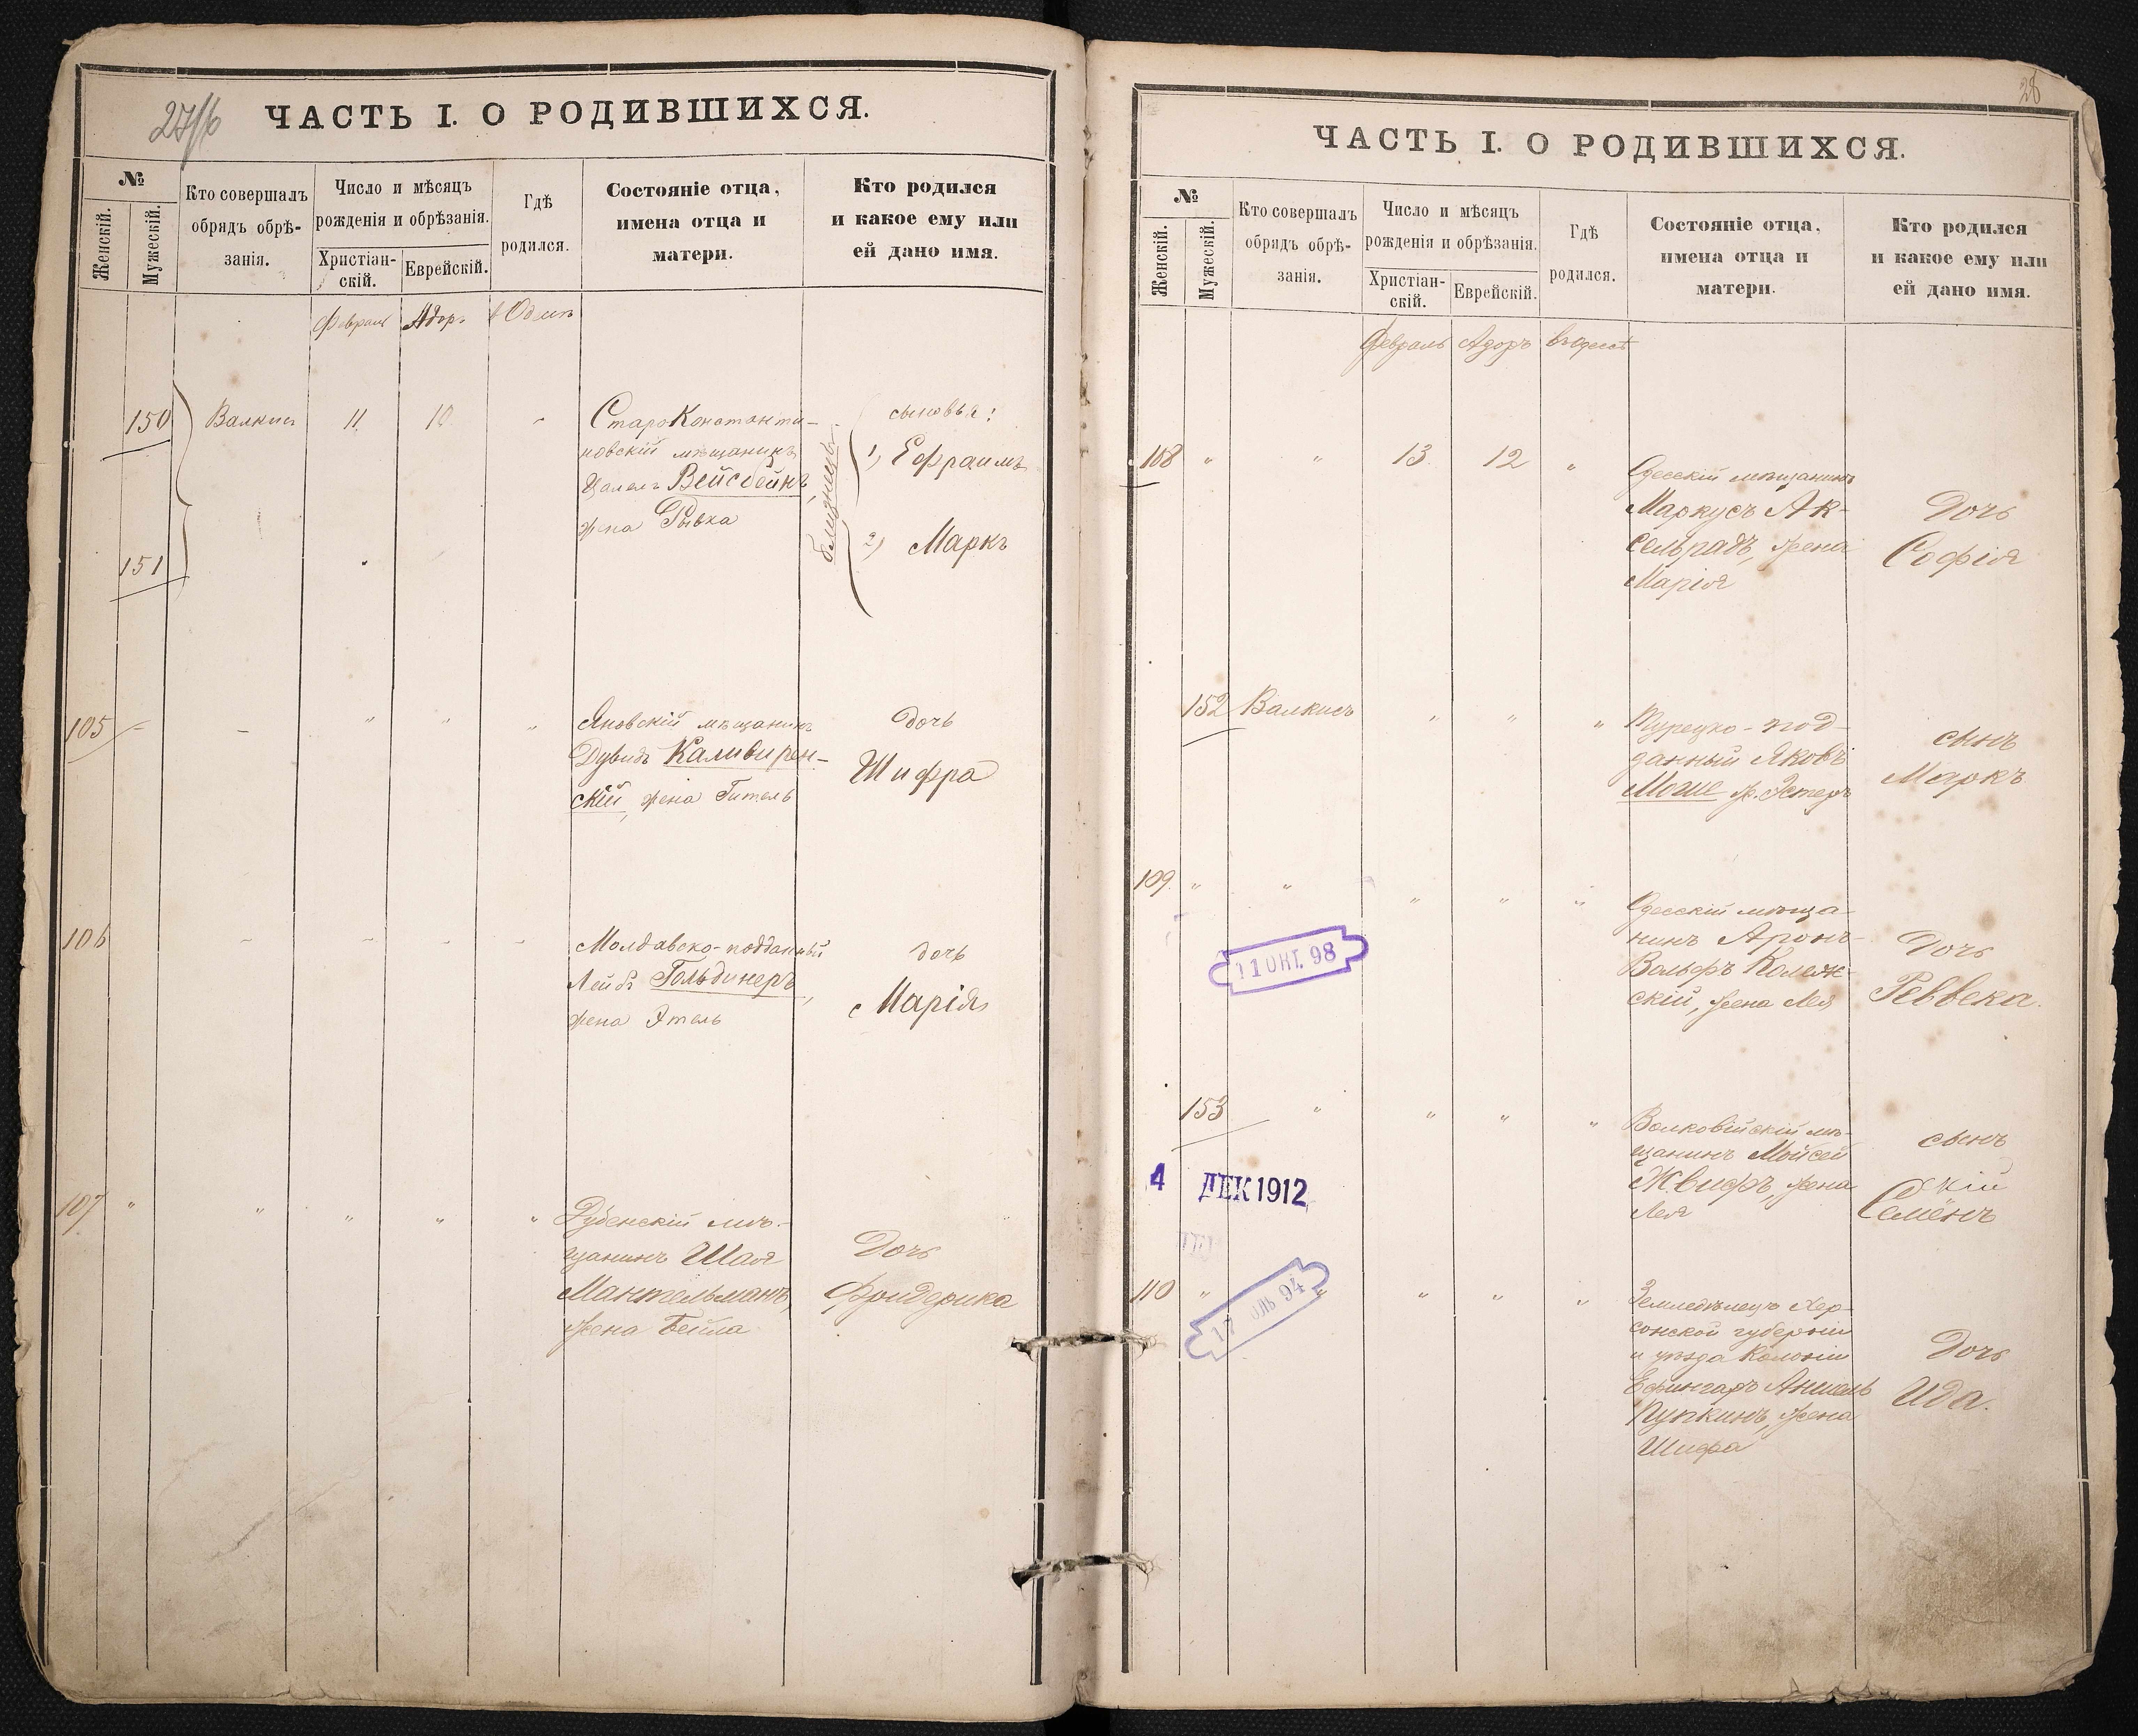 ЧАСТЬ I. О РОДИВШИХСЯ.
№
Женскій.
Мужескій.
Кто совершалъ
обрядъ обрѣ-
занія.
Число и мѣсяцъ
рожденія и обрѣзанія.
Христіан-
скій.
Еврейскій.
Гдѣ
родился.
Состояніе отца,
имена отца и
матери.
Кто родился
и какое ему или
ей дано имя.
Февраль Адоръ
150 Валкисъ 11 10
СтароКонстанти-
новскій мѣщанинъ
Вейсбейнъ,
жена Рывка
близнецы
сыновья:
1) Ефраимъ
2) Маркъ
151
105 " " "
Яновскій мѣщанинъ
Дувидъ Каливирен-
скій, жена Гитель
дочь
Шифра
106
Молдавско-подданный
Лейбъ Гольдинеръ,
жена Этель
дочь
Марія
107 " " " " "
Дубенскій мѣ-
щанинъ Шая
Мантельманъ,
жена Бейла
Дочь
Фридерика
28
ЧАСТЬ I. О РОДИВШИХСЯ.
№
Женскій.
Мужескій.
Кто совершалъ
обрядъ обрѣ-
занія.
Число и мѣсяцъ
рожденія и обрѣзанія.
Христіан-
скій.
Еврейскій.
Гдѣ
родился.
Состояніе отца,
имена отца и
матери.
Кто родился
и какое ему или
ей дано имя.
Февраль Адоръ въ Одессѣ
108 " " 13 12 "
Одесскій мѣщанинъ
Маркусъ Ак-
сельрадъ, жена
Марія
Дочь
Софія
152 Валкисъ " " "
Турецко-под-
данный Яковъ
Моше ж. Эстеръ
сынъ
Маркъ
109 " " " " "
Одесскій мѣща-
нинъ Аронъ-
Вольфъ Колеж-
скій, жена Лея
Дочь
Реввека.
11 ОКТ. 98
153 " " " "
Волковійскій мѣ-
щанинъ Мойсей
Жвифъ, жена
Лея
сынъ
Семёнъ
4 ДЕК 1912
110 " " " " "
Земледѣлецъ Хер-
сонской губерніи
и уѣзда Колоніи
Ефингаръ Аншель
Пупкинъ, жена
Шифра
Дочь
Ида.
17 ОЛЬ 94